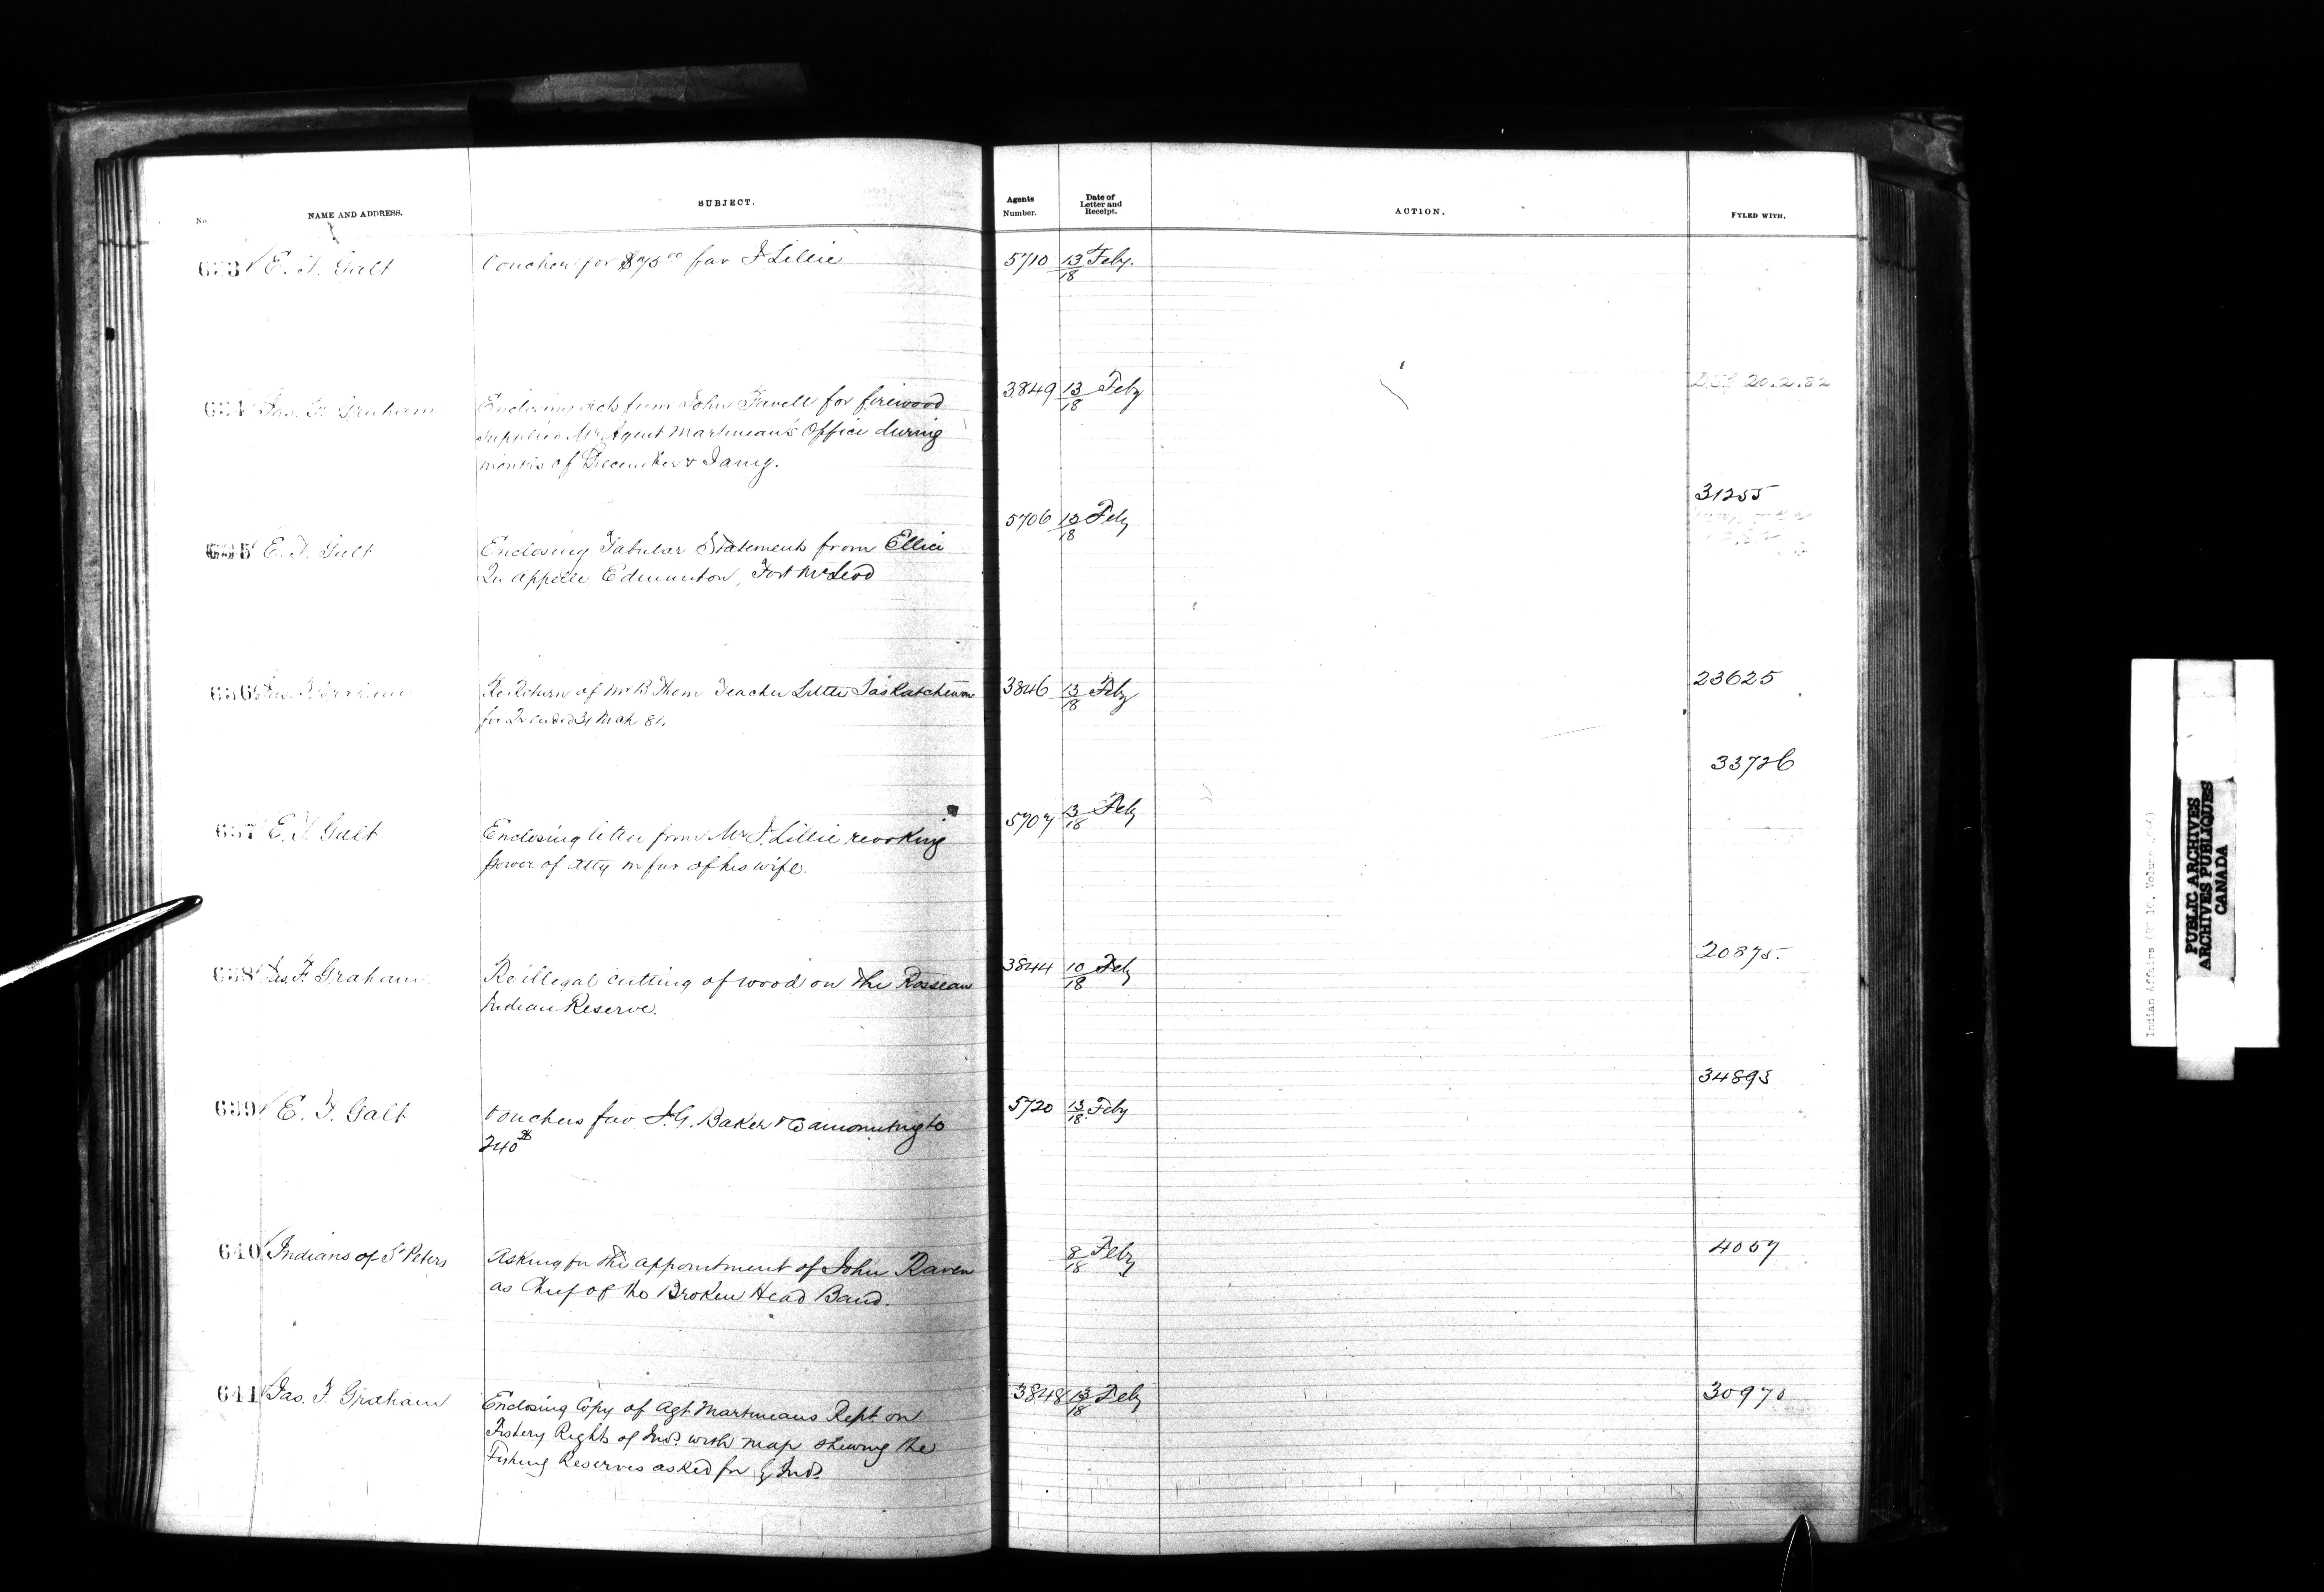 No. NAME AND ADDRESS. SUBJECT. Agents Number. Date of Letter and Receipt. ACTION. FYLED WITH.
E. T. Galt Voucher for $75 00 fav J Lillie 5710 13/18 Feby.
Jas. F. Graham Enclosing accts from John Favell for firewood 3849 13/18 Feby 20.2.82
supplied Mr Agent Martineau's Office during
months of December & Jany.
31255
E. T. Galt Enclosing Tabular Statements from Ellice 5706 13/18 Feby
Qu Appelle, Edmonton, Fort McLeod
636 Jas. F. Graham Re Return of Mr B Thom Teacher Little Saskatchewan 3846 13/18 Feby 23625
for Qr ended 31 Mch 81.
33726
637 E. T. Galt Enclosing letter from Mr J. Lillie revoking 5707 13/18 Feby
power of atty in fav of his wife.
638 Jas. F. Graham Re illegal cutting of wood on the Rosseau 3844 10/18 Feby 20875.
Indian Reserve.
34893
639 E. T. Galt Vouchers fav I. G. Baker & Co amounting to 5720 13/18 Feby
240
640 Indians of St Peters Asking for the appointment of John Raven 8/18 Feby 4057
as Chief of the Broken Head Band.
641 Jas. F. Graham Enclosing Copy of Agt Martineaus Rept. on 3848 13/18 Feby 30970
Fishery Rights of Inds. with map shewing the
Fishing Reserves asked for by Inds.
Indian Affairs (RG 10, Volume
PUBLIC ARCHIVES
ARCHIVES PUBLIQUES
CANADA